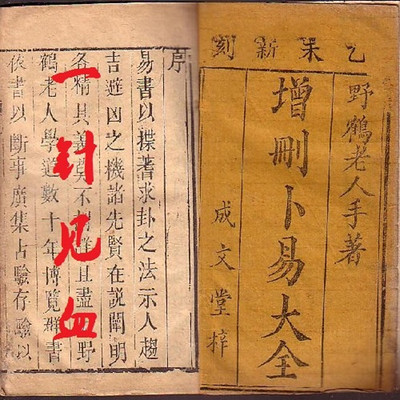 乙未新刻
野鶴老人手著
增刪卜易大全
成文堂梓
序
易書以揲蓍求卦之法示人趨
吉避凶之機諸先賢在説闡明
各精其義不群且盡野
鶴老人學道數十年博覽群書
依書以斷事廣集占驗存驗以
一针见血